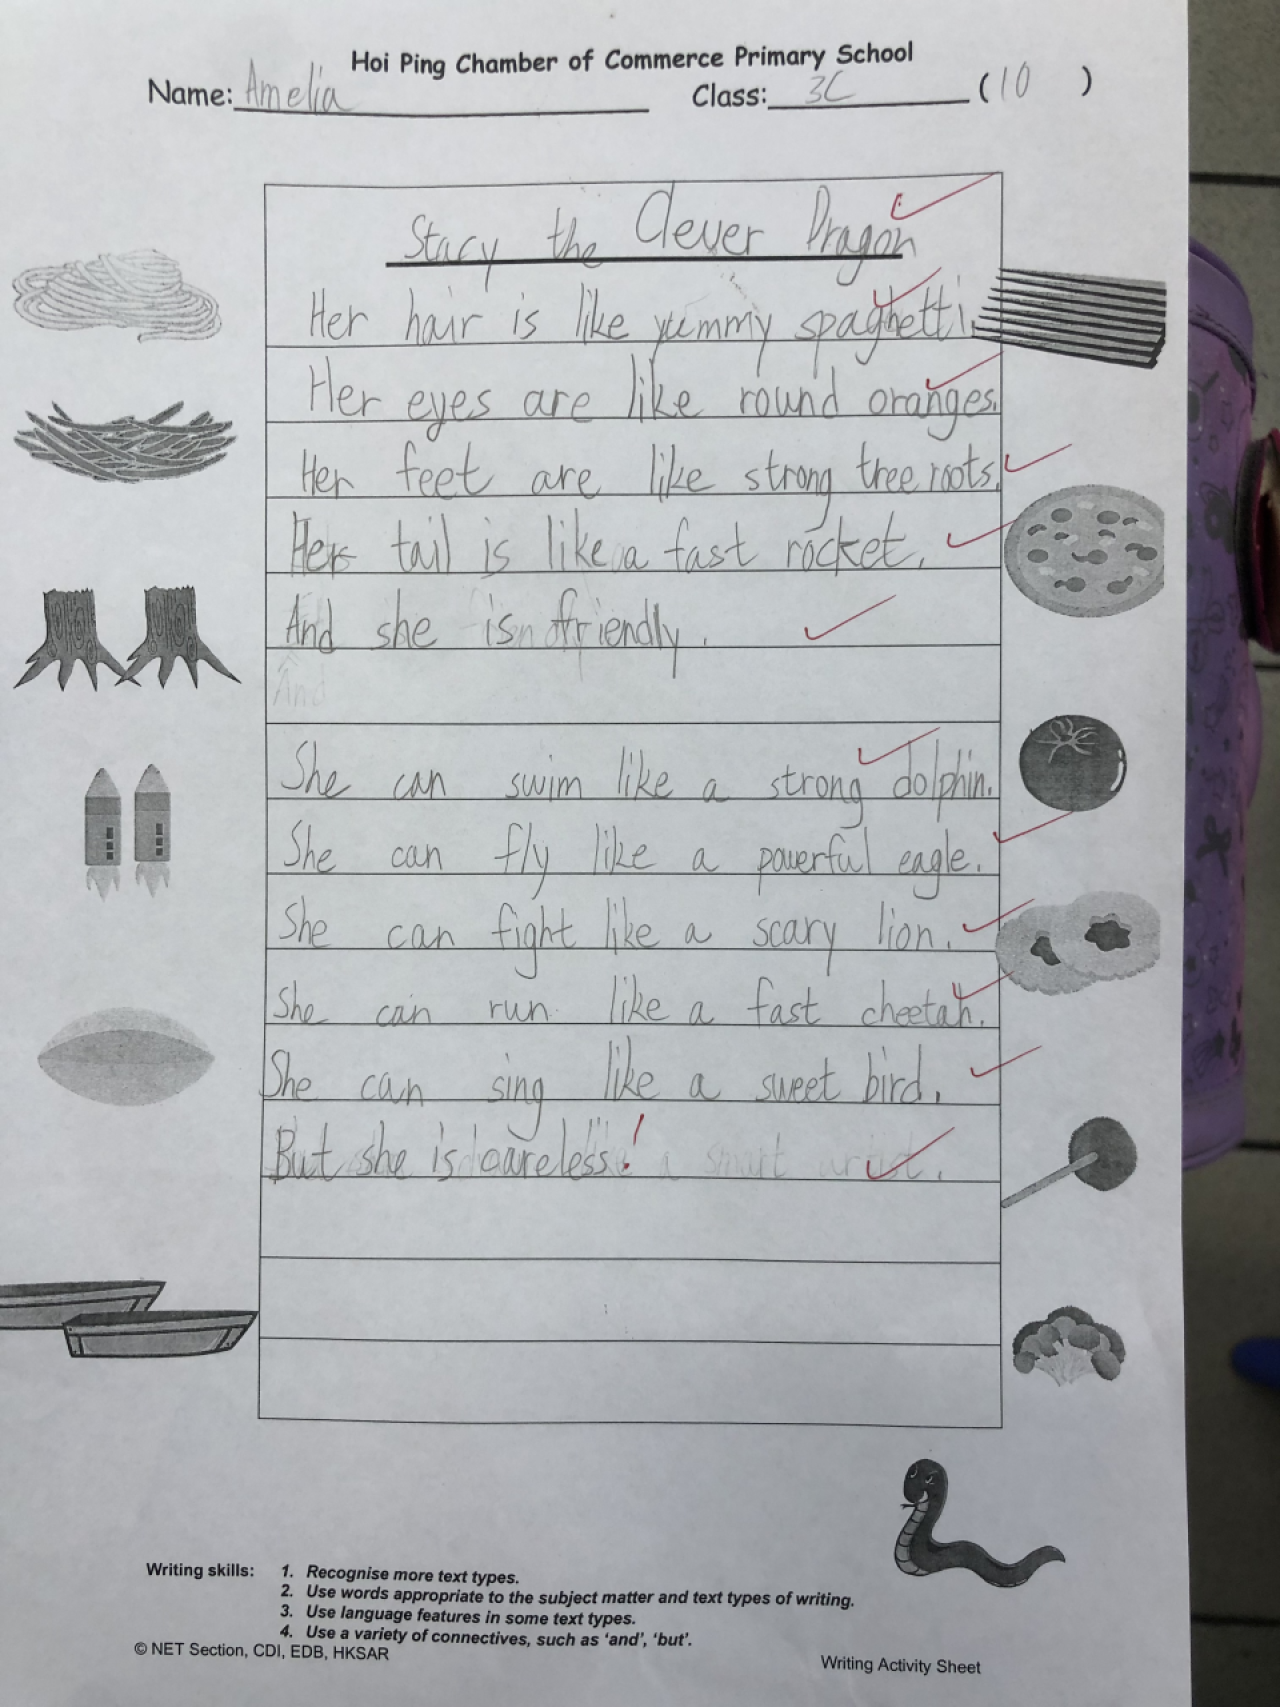 Hoi Ping Chamber of Commerce Primary School
Name: Amelia Class: 3C (10 )
Stacy the Clever Dragon
Her hair is like yummy spaghetti.
Her eyes are like round oranges.
Her feet are like strong tree roots.
Her tail is like a fast rocket.
And she is friendly.
And
She can swim like a strong dolphin.
She can fly like a powerful eagle.
She can fight like a scary lion.
She can run like a fast cheetah.
She can sing like a sweet bird.
But she is careless! a smart artist.
Writing skills: 1. Recognise more text types.
2. Use words appropriate to the subject matter and text types of writing.
3. Use language features in some text types.
4. Use a variety of connectives, such as ‘and’, ‘but’.
© NET Section, CDI, EDB, HKSAR
Writing Activity Sheet